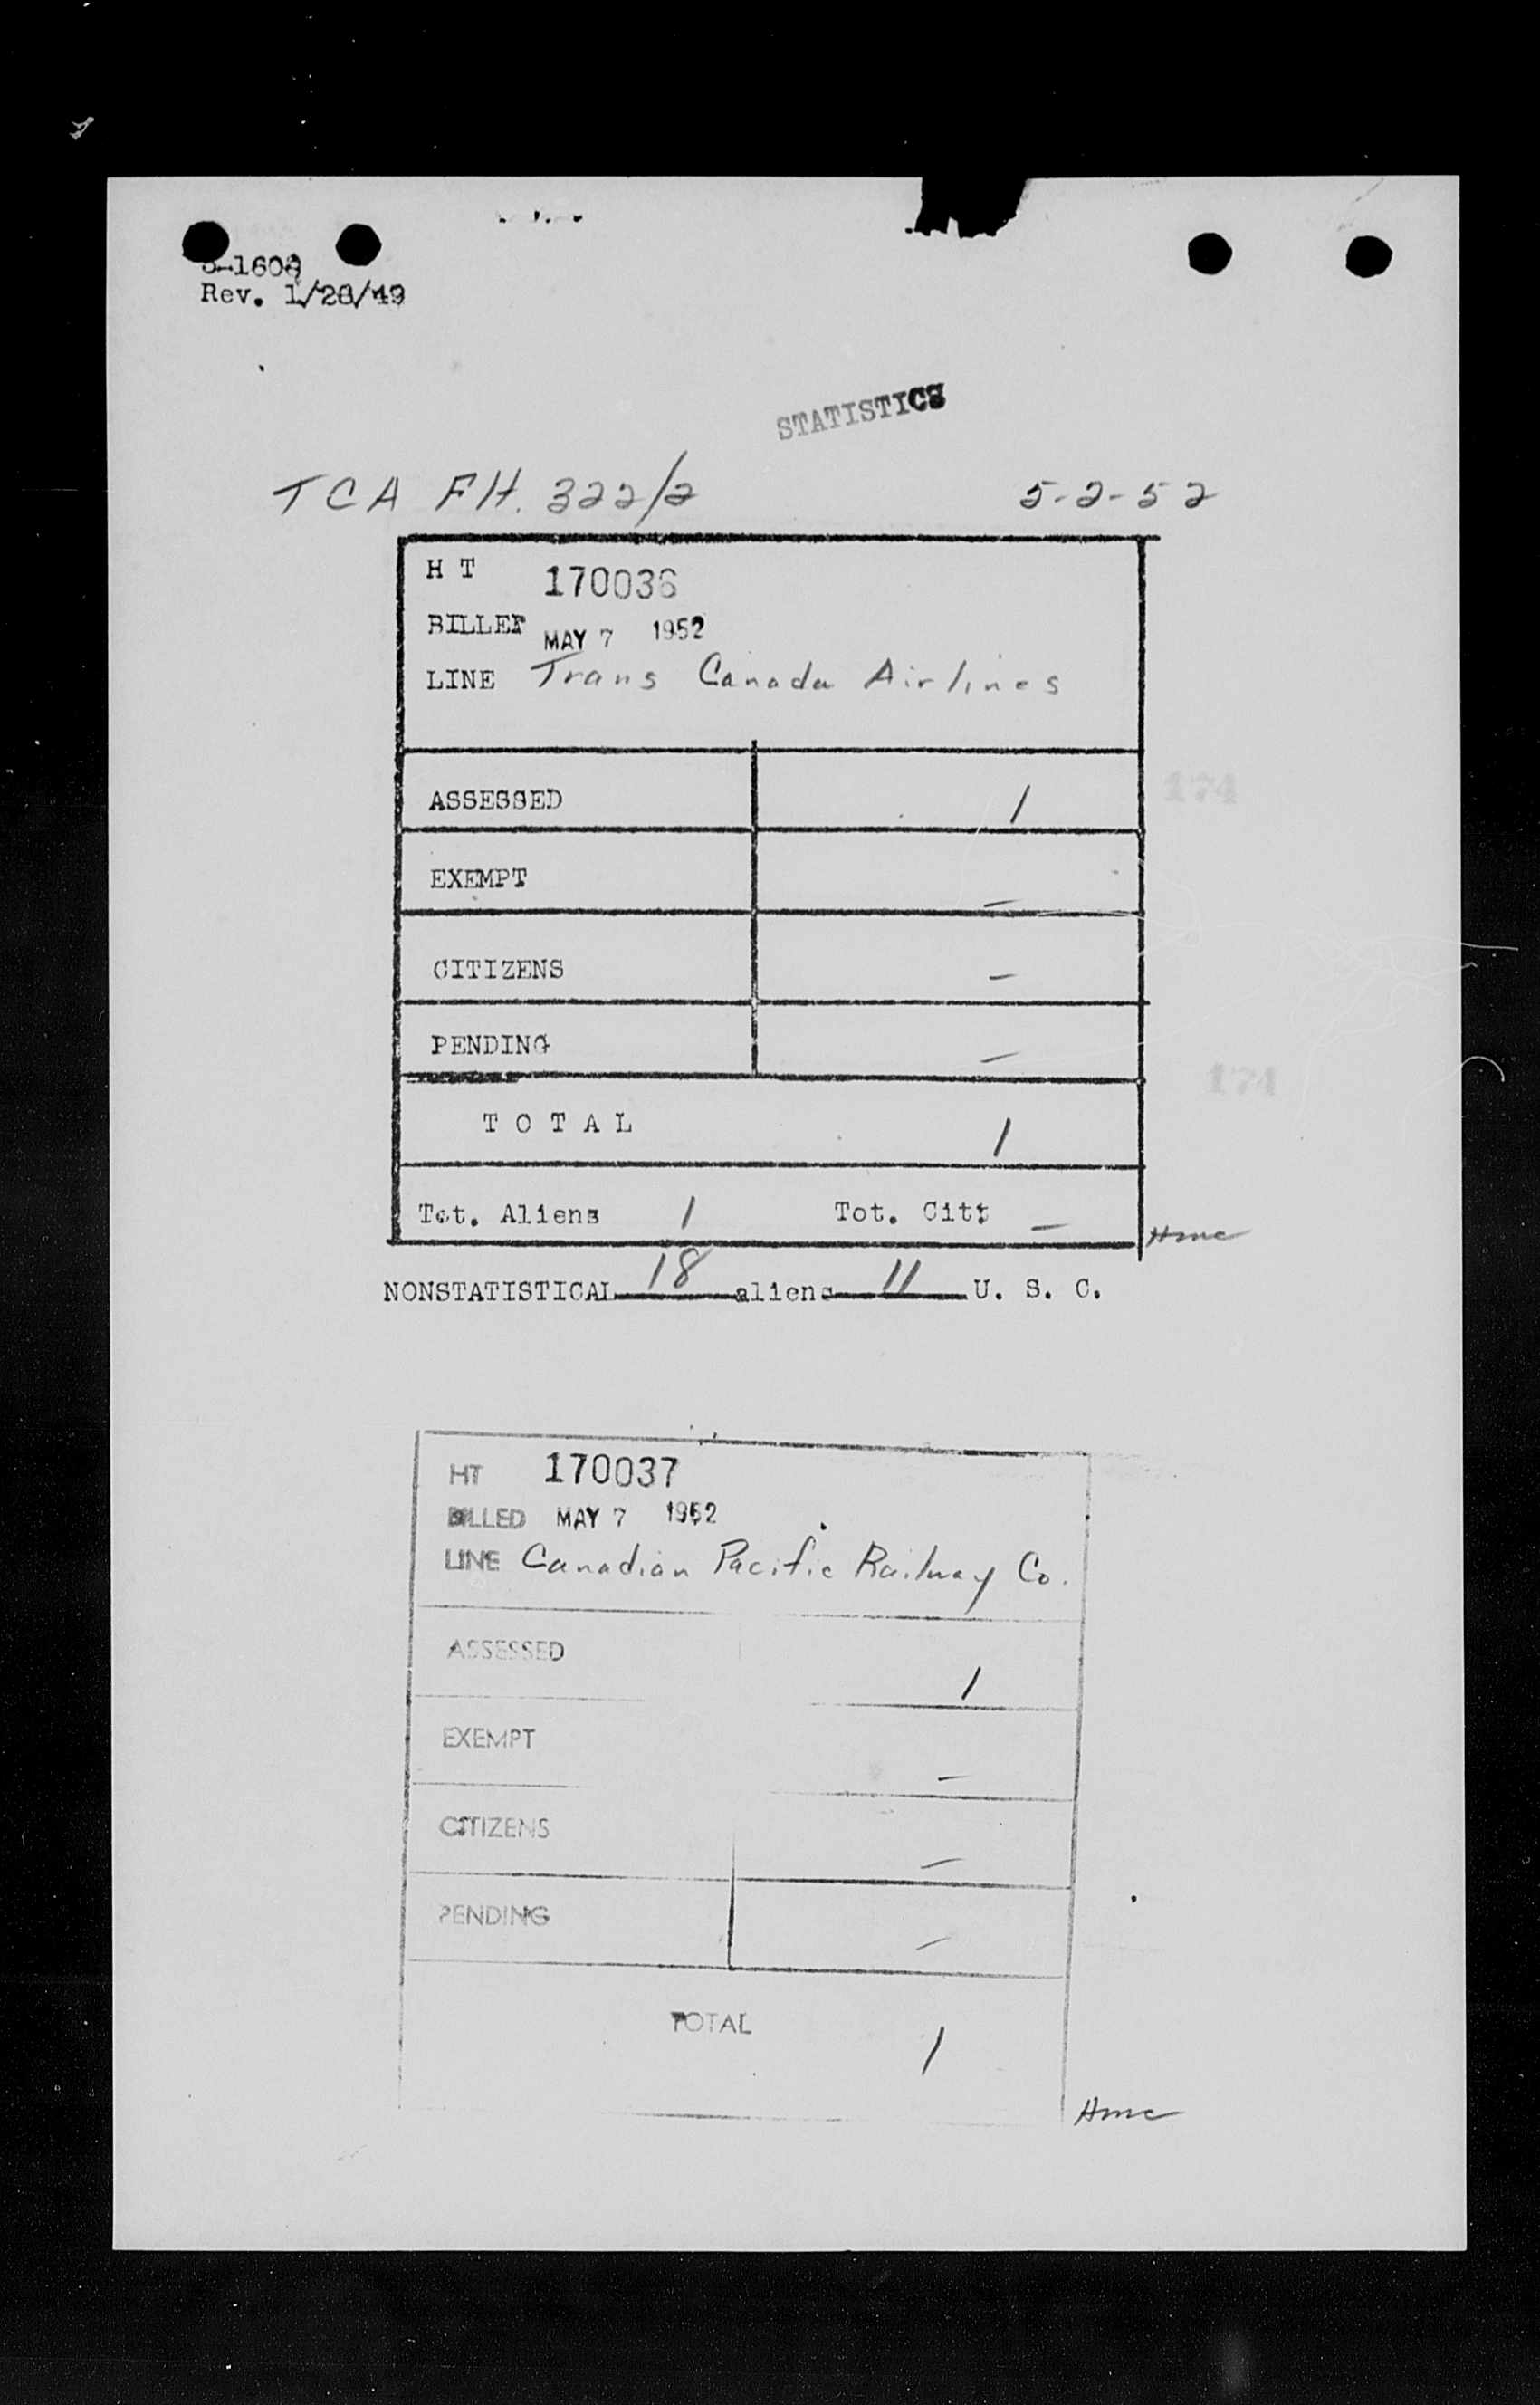 Rev. 1/28/49
STATISTICS
TCA Flt. 322/2 5-2-52
H T 170036
BILLED MAY 7 1952
LINE Trans Canada Airlines
ASSESSED 1
EXEMPT –
CITIZENS –
PENDING –
T O T A L 1
Tot. Aliens 1 Tot. Citz –
NONSTATISTICAL 18 aliens 11 U. S. C.
174
174
HT 170037
BILLED MAY 7 1952
LINE Canadian Pacific Railway Co.
ASSESSED 1
EXEMPT –
CITIZENS –
PENDING –
TOTAL 1